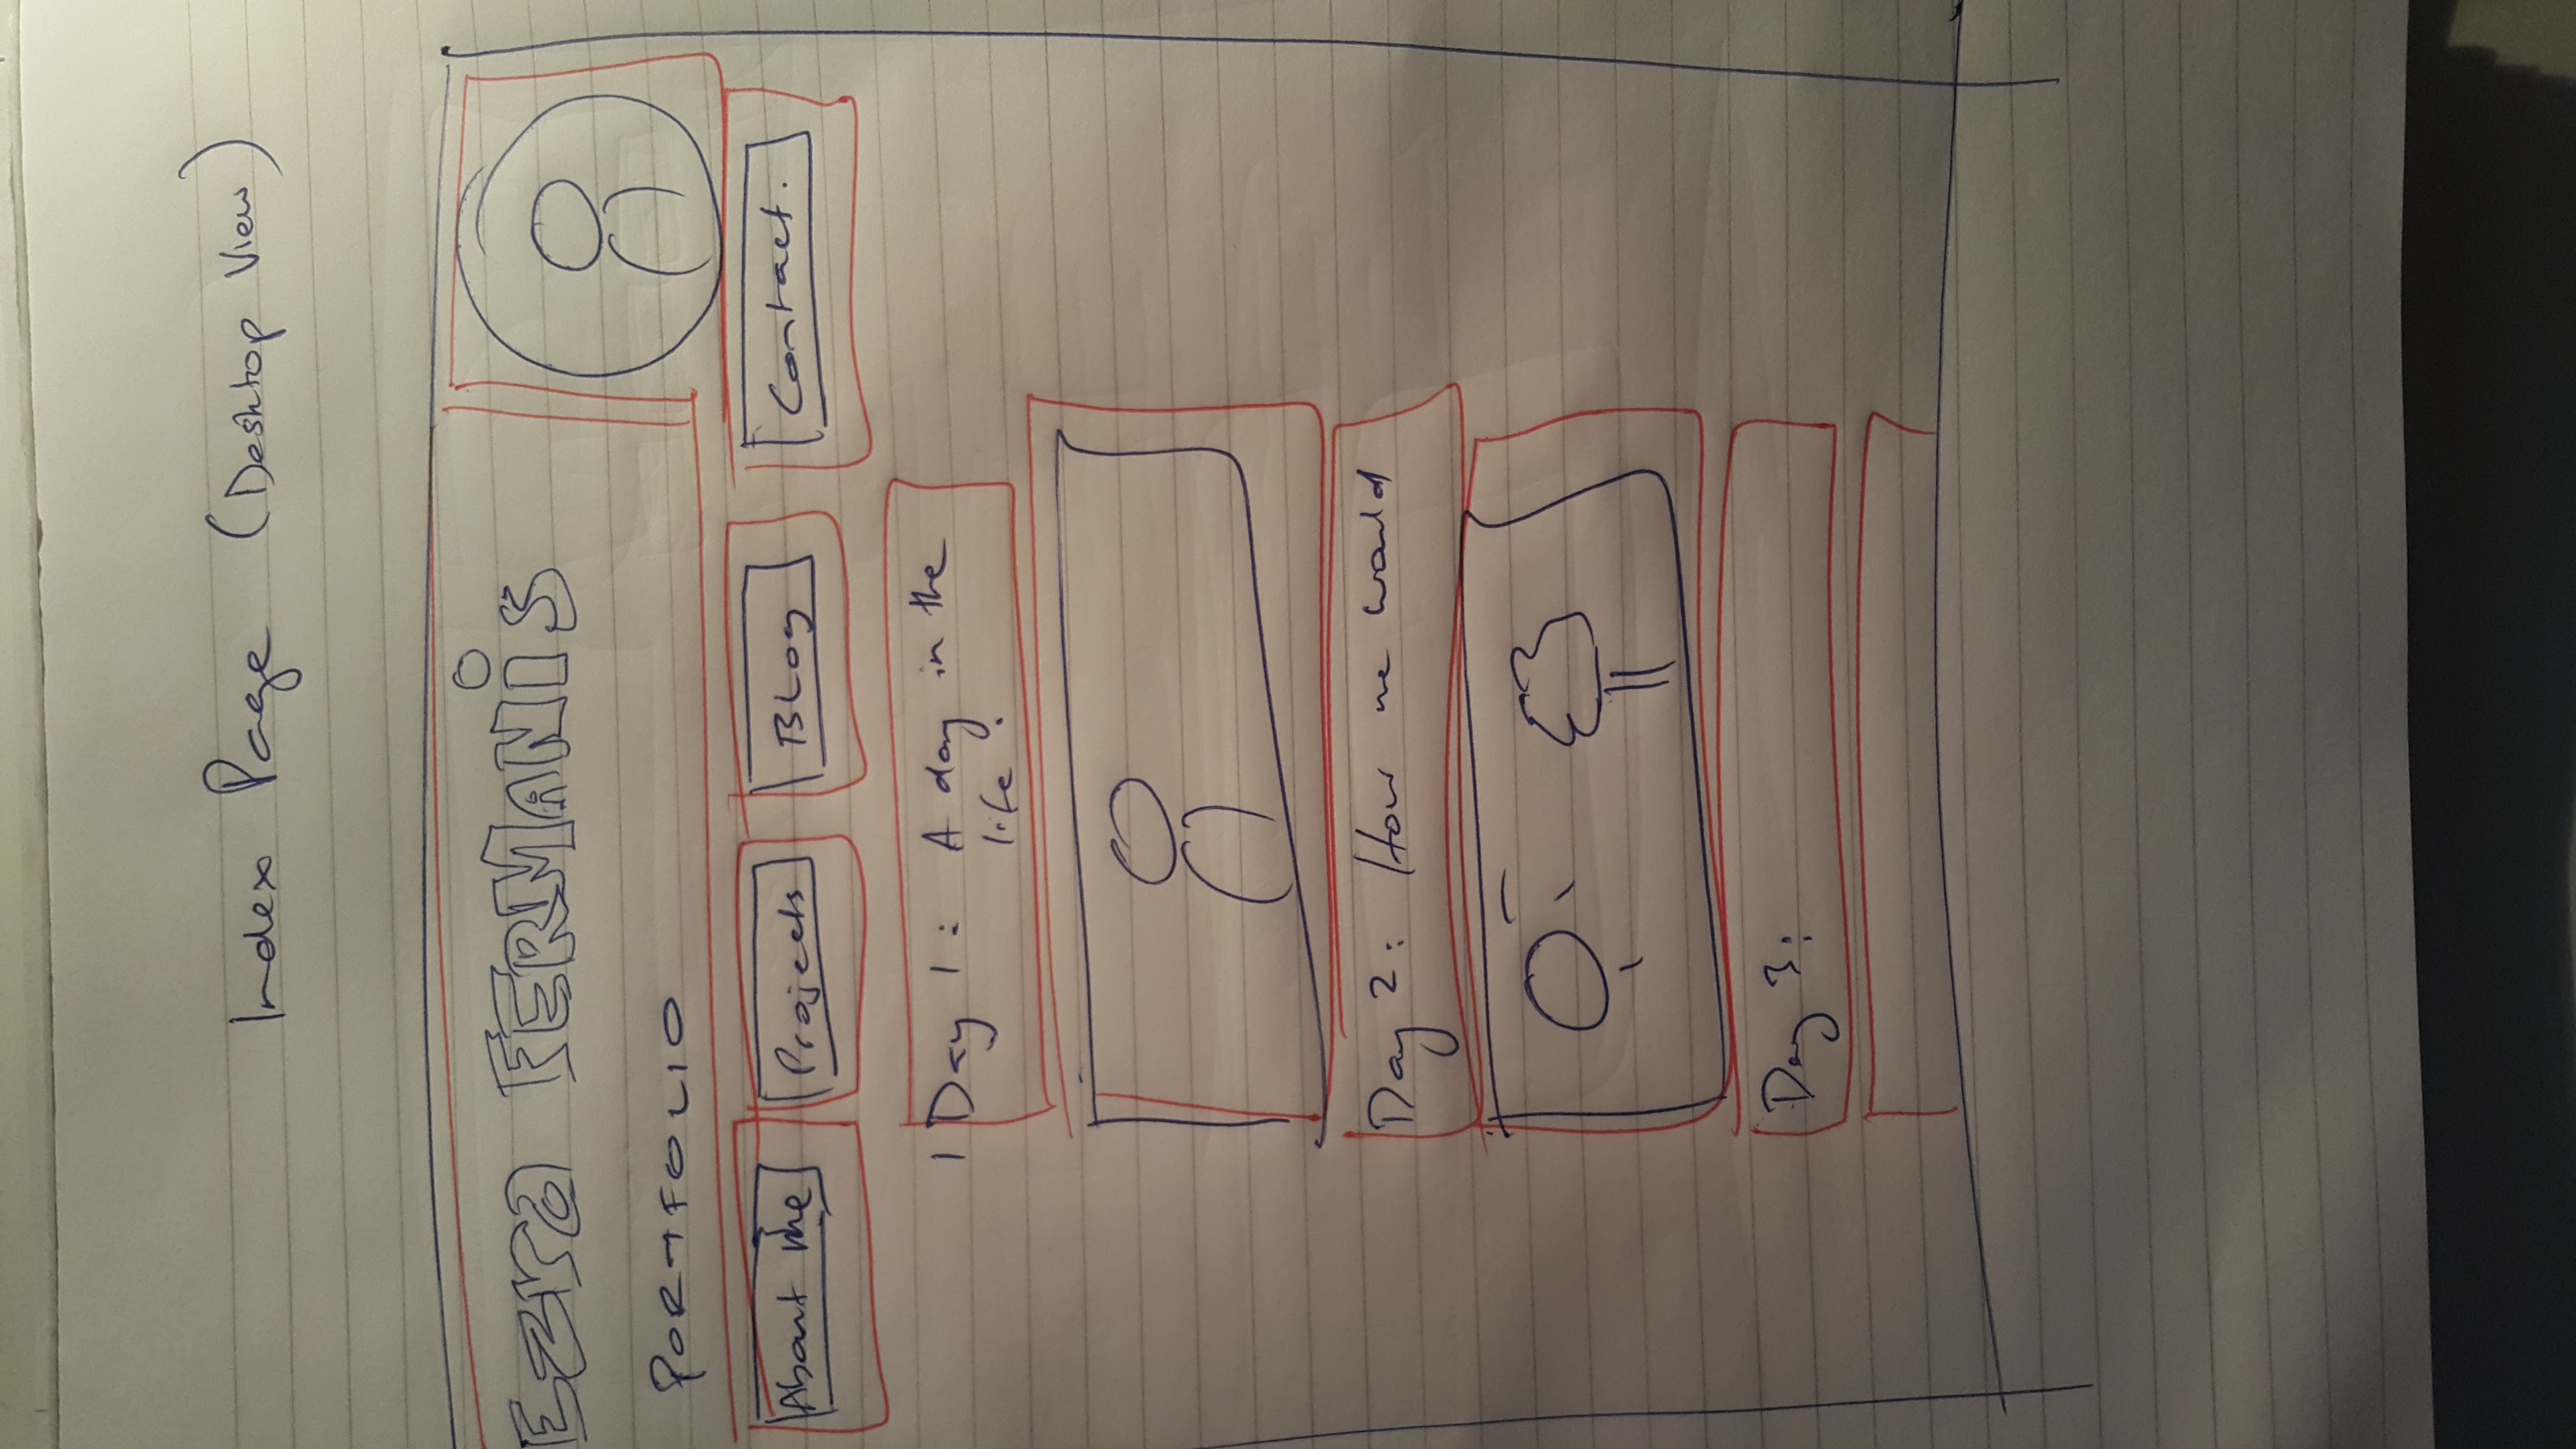 Index Page (Desktop View)
Ezra FERMANiS
PORTFOLIO
About me
Projects
BLog
Contact.
Day 1: A day in the
life.
Day 2: How we would
Day 3: